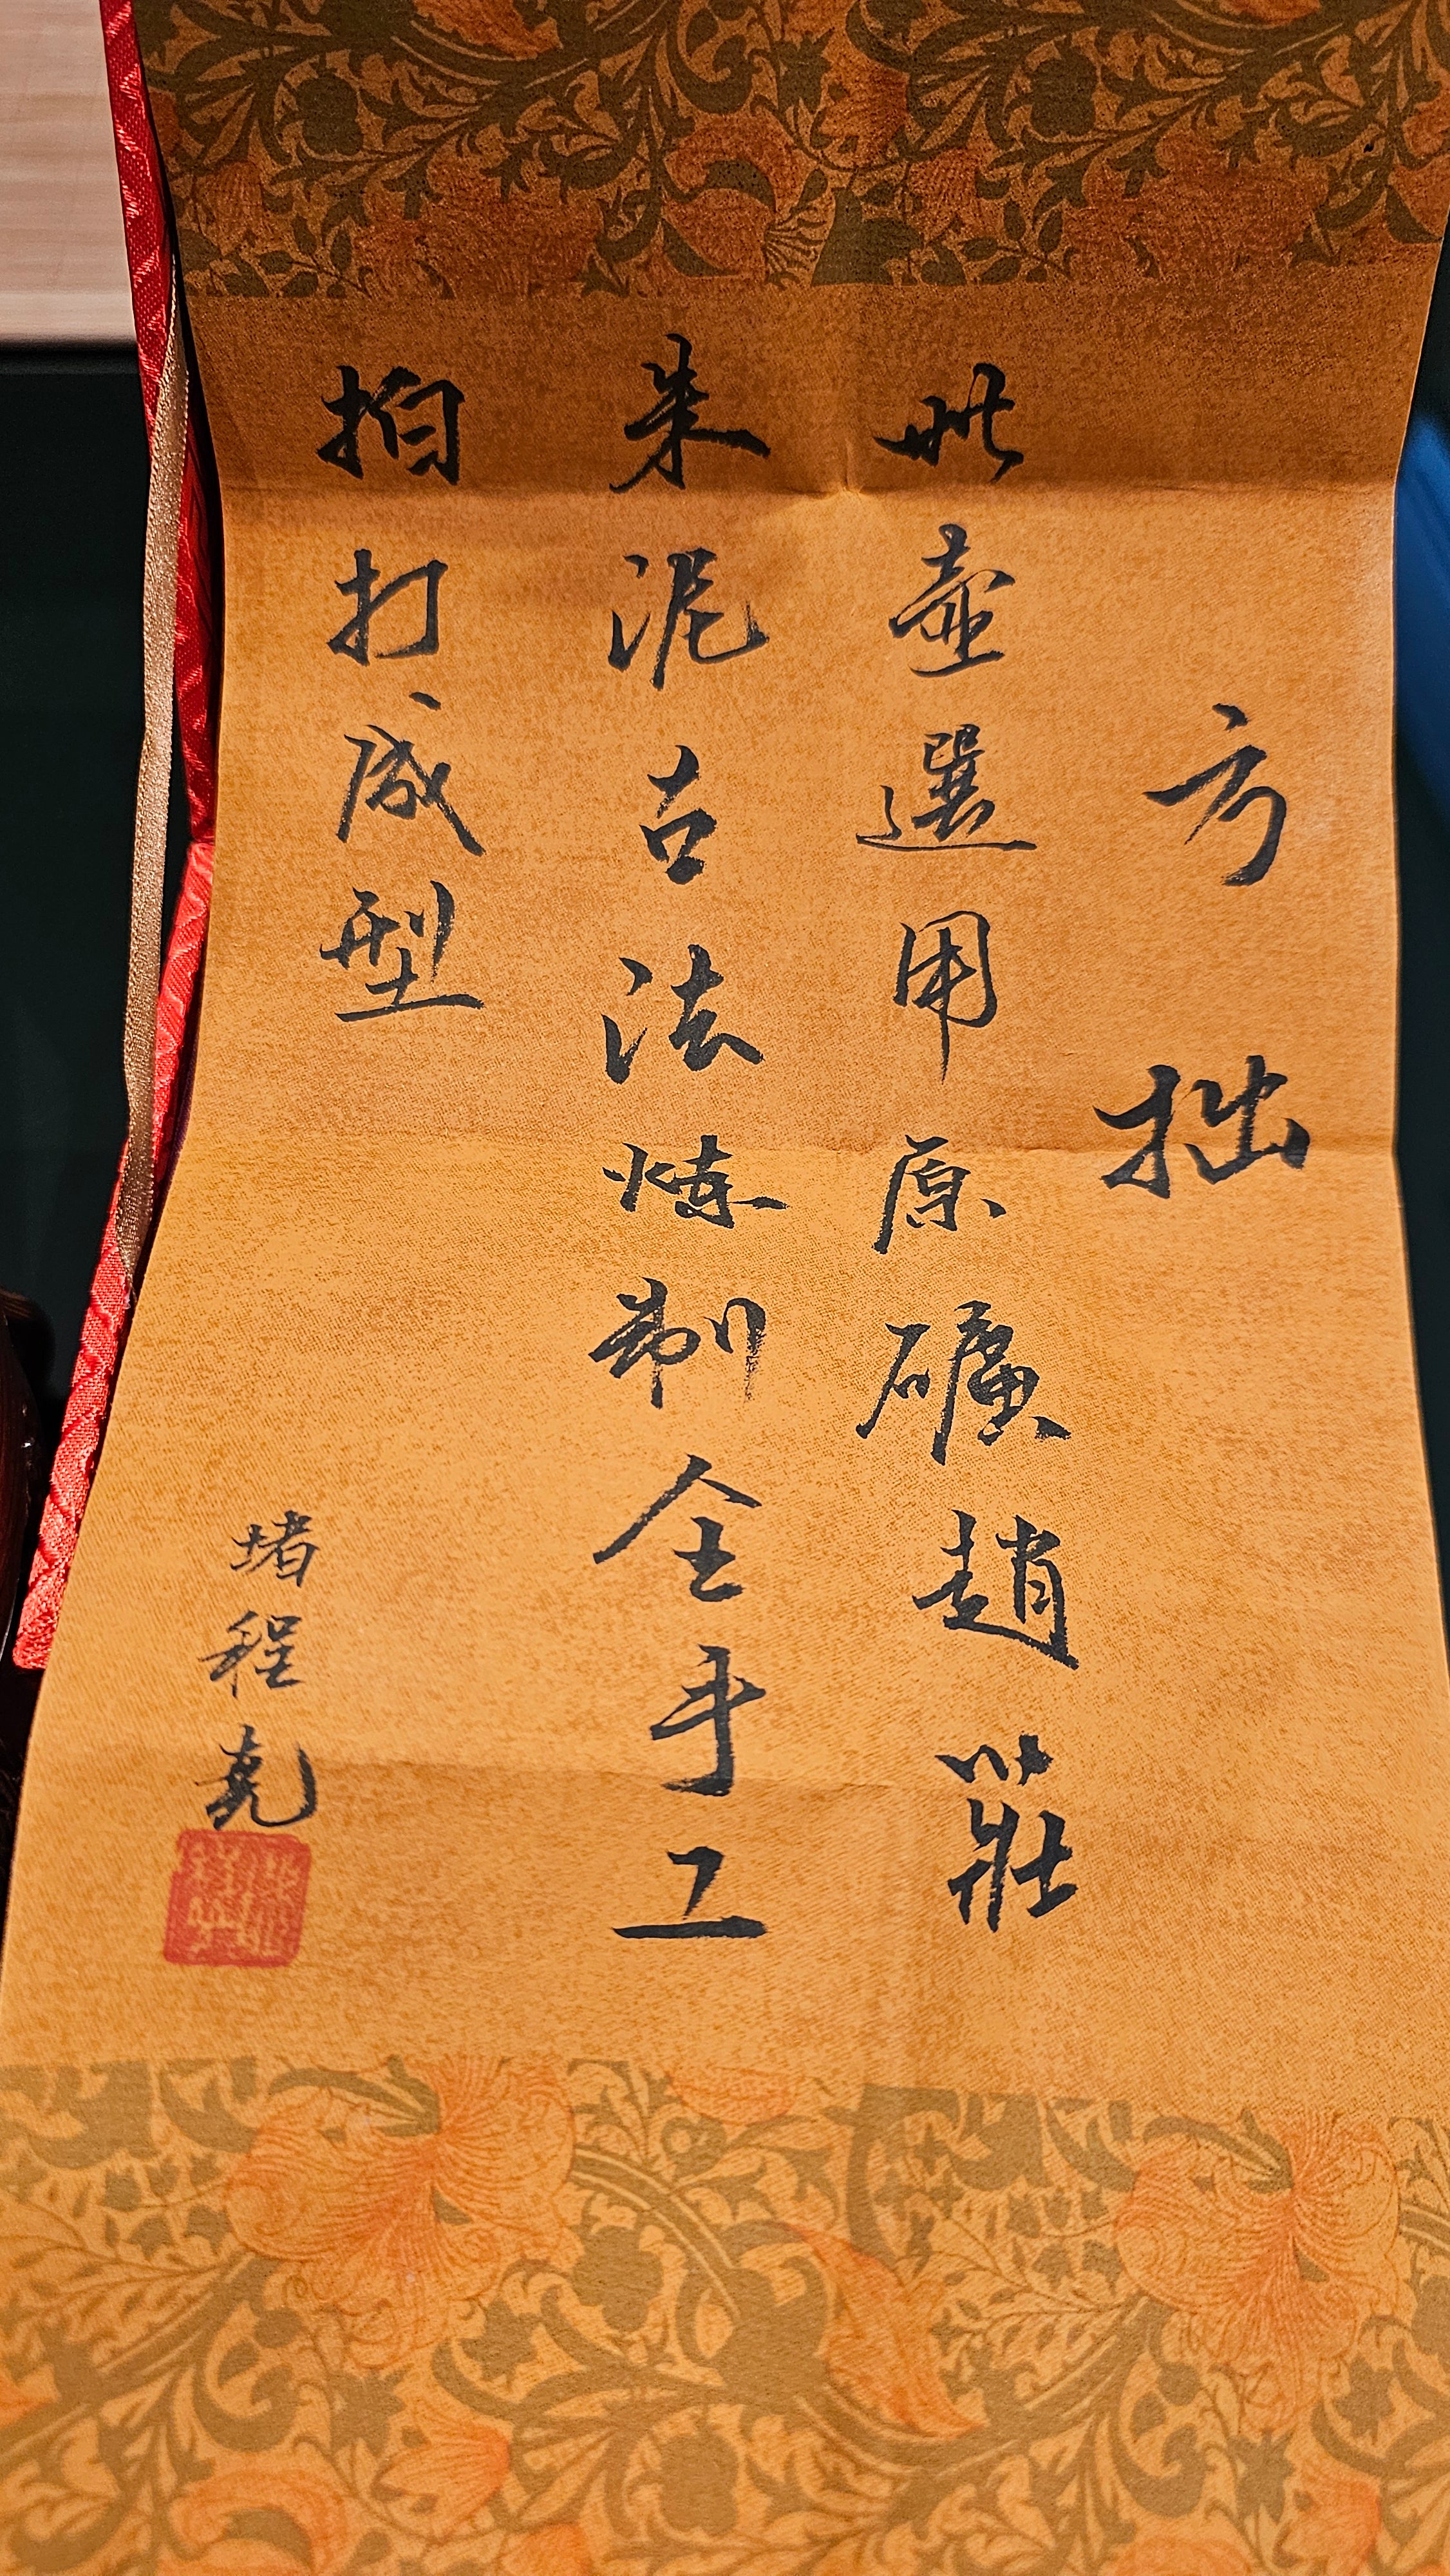 方拙
此壺選用原礦趙莊
朱泥古法炼制全手工
拍打成型
堵程尭